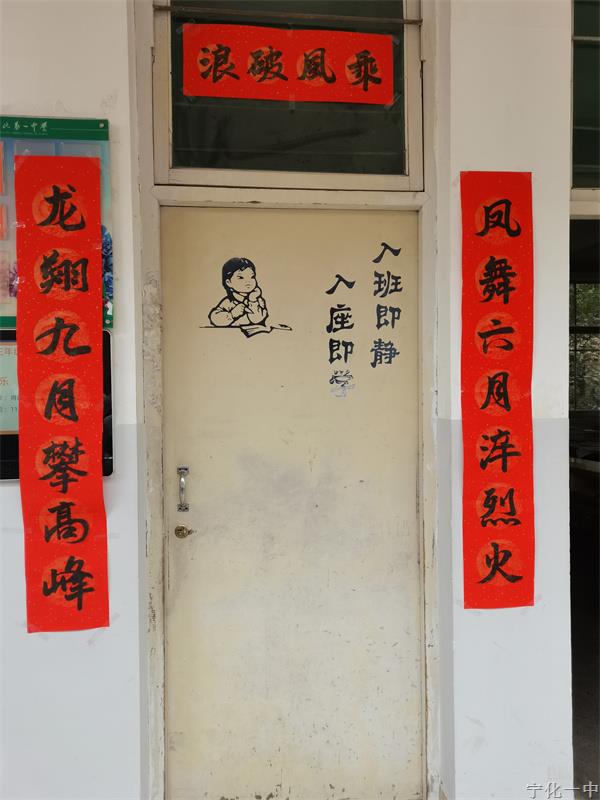 乘風破浪
凤舞六月淬烈火
龙翔九月攀高峰
入班即静
入座即学
宁化一中